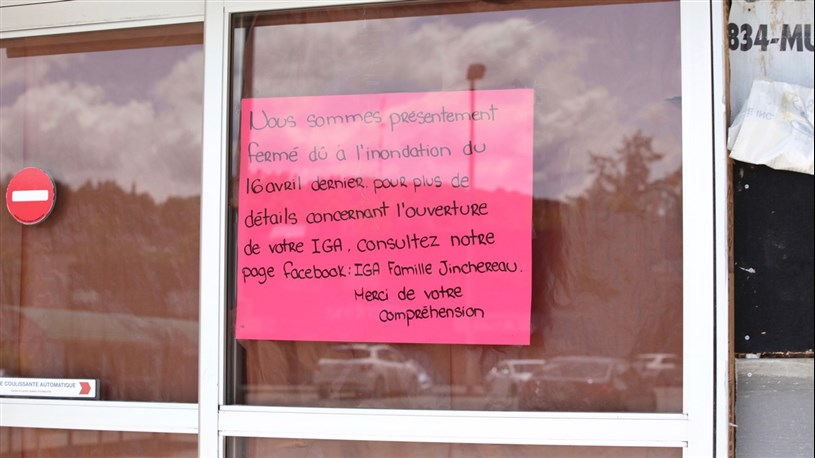 834-MU
Nous sommes présentement
fermé dû à l'inondation du
16 avril dernier. pour plus de
détails concernant l'ouverture
de votre IGA. consultez notre
page facebook: IGA Famille Jinchereau.
Merci de votre
compréhension
E COULISSANTE AUTOMATIQUE